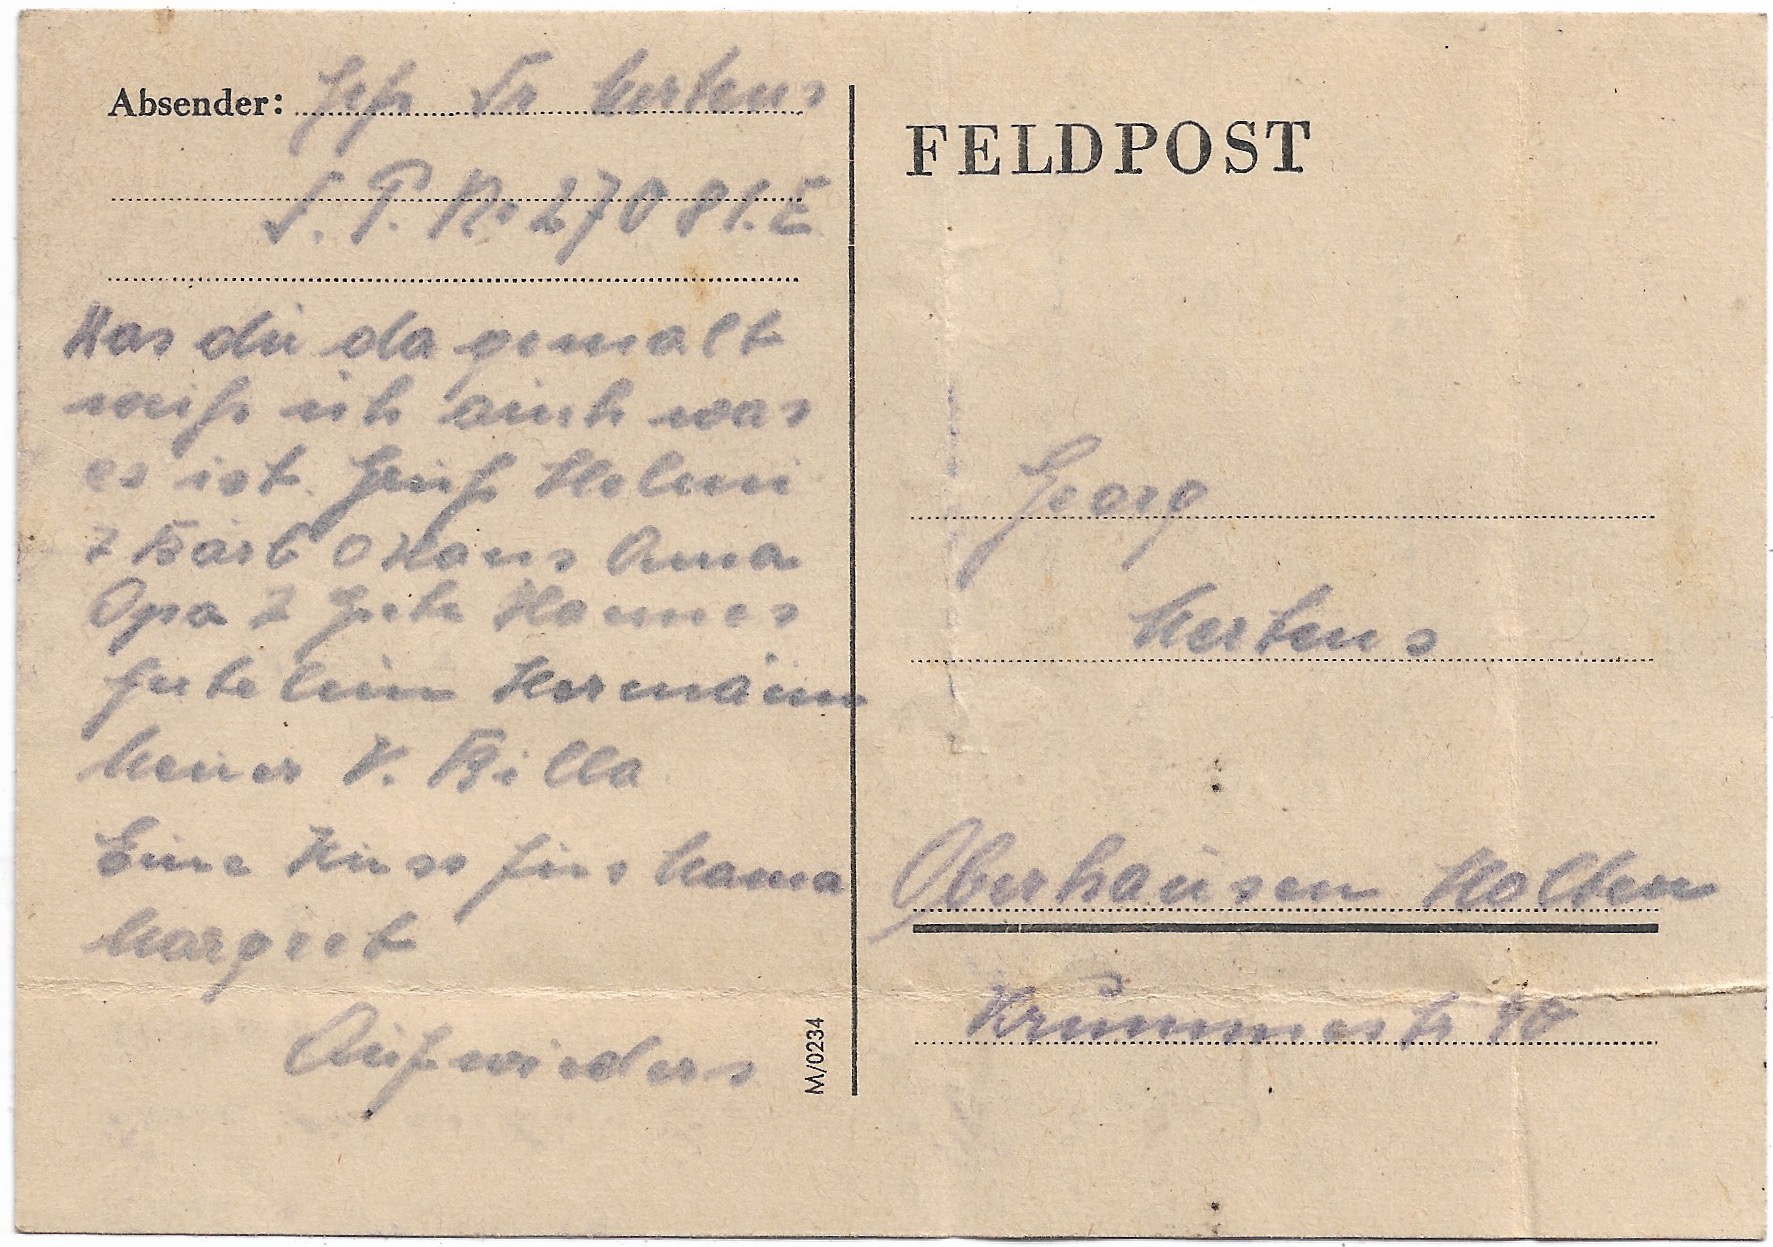 Absender: Gefr Fr Mertens
F. P. Nr 27081.E
Was du da gemalt
weiß ich auch was
es ist. Gruß Helmi
Hans Oma
Opa Hannes
Hermann
V. Billa
Eine Kuss fürs Mama
Margret
Aufwieders
M/0234
FELDPOST
Georg
Mertens
Oberhausen Holten
Krummestr 90